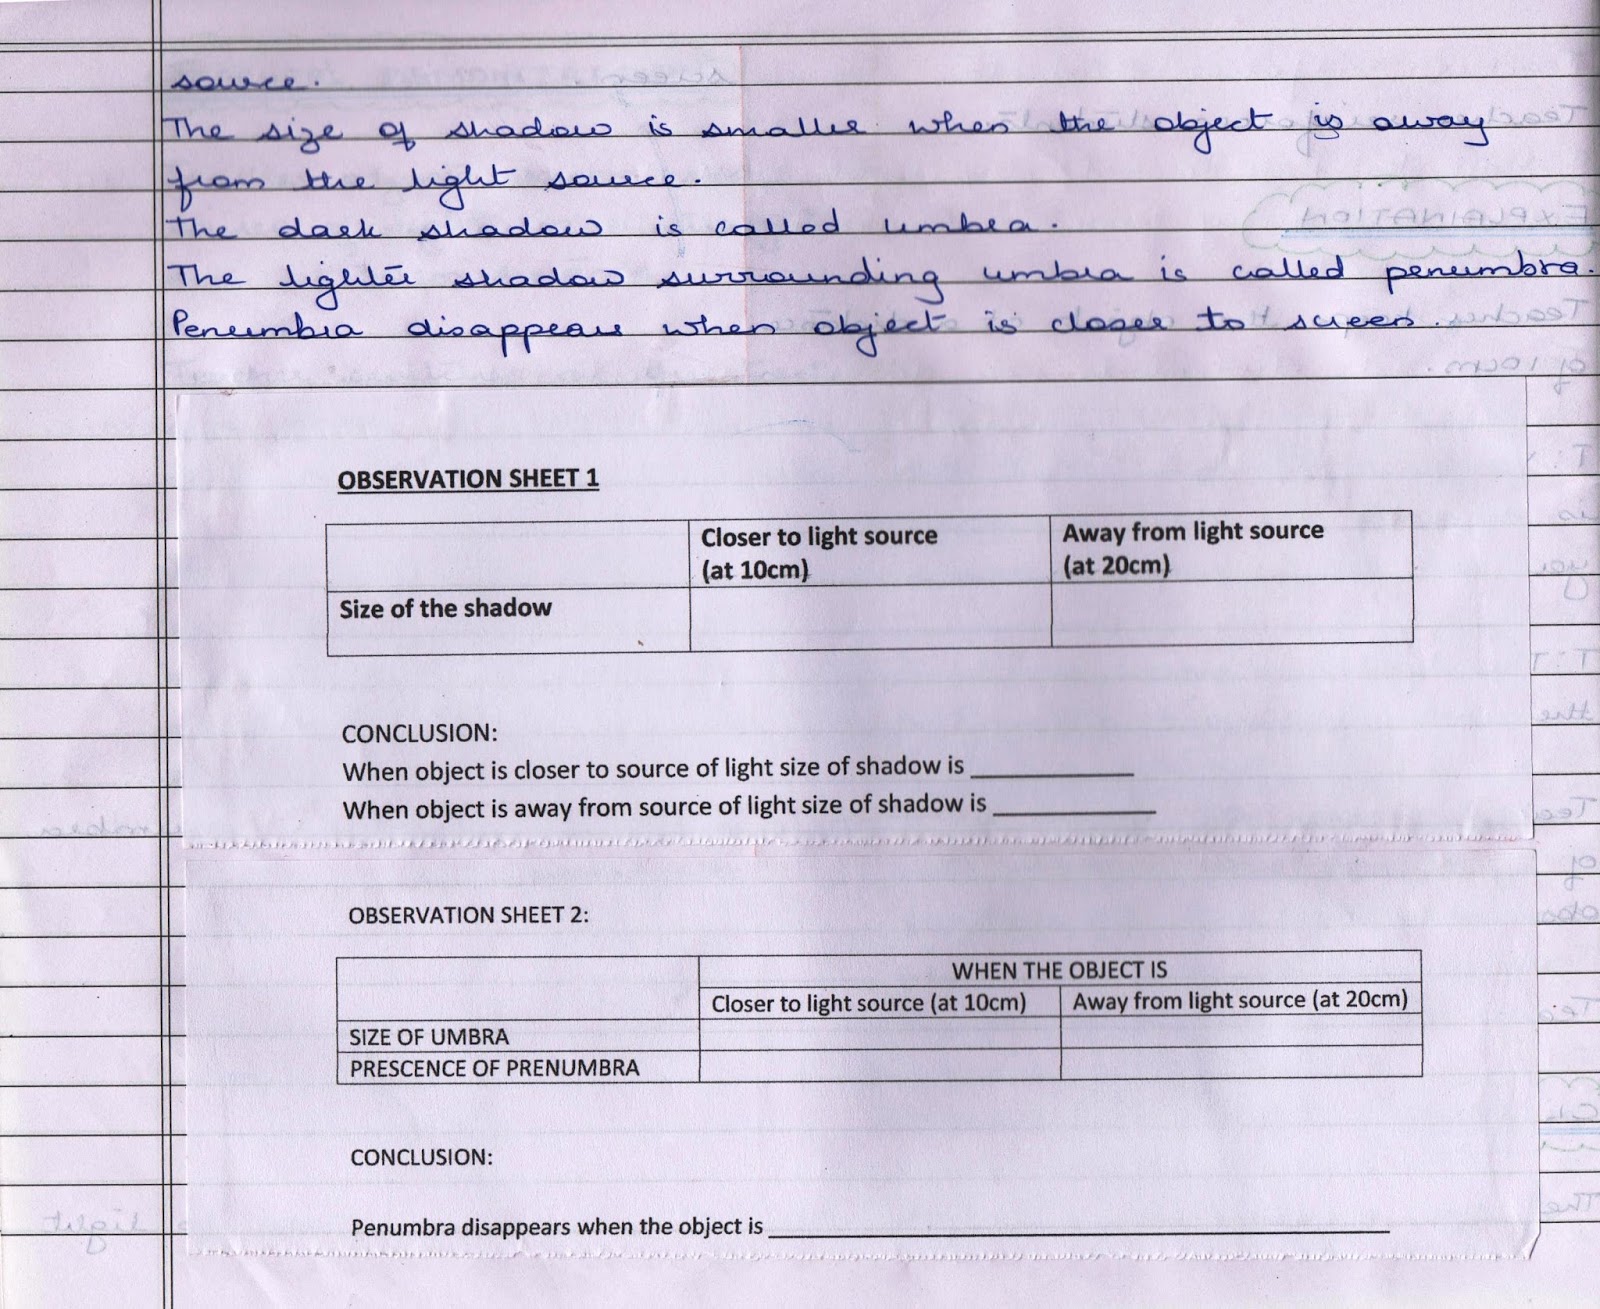 source.
The size of shadow is smaller when the object is away
from the light source.
The dark shadow is called umbra.
The lighter shadow surrounding umbra is called penumbra.
Penumbra disappears when object is closer to screen.
OBSERVATION SHEET 1
Closer to light source Away from light source
(at 10cm) (at 20cm)
Size of the shadow
CONCLUSION:
When object is closer to source of light size of shadow is ____________
When object is away from source of light size of shadow is ____________
OBSERVATION SHEET 2:
WHEN THE OBJECT IS
Closer to light source (at 10cm) Away from light source (at 20cm)
SIZE OF UMBRA
PRESCENCE OF PRENUMBRA
CONCLUSION:
Penumbra disappears when the object is ____________